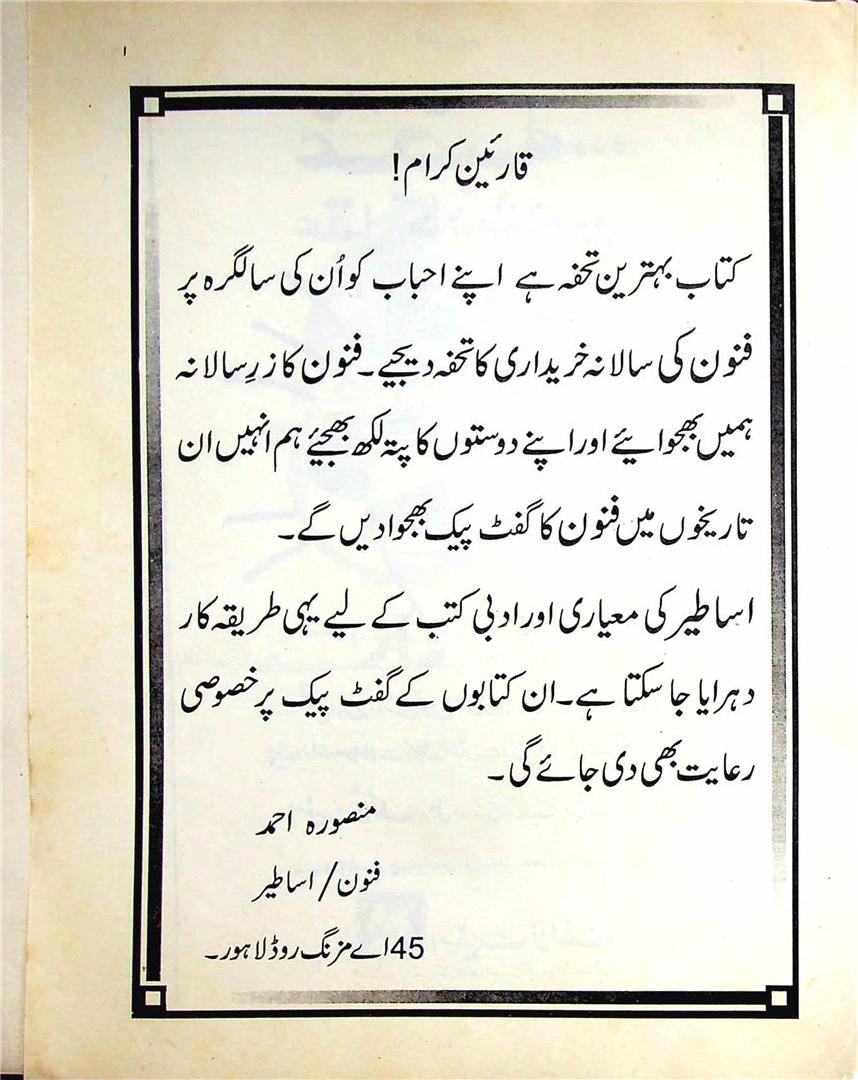 ۱
قارئین کرام!
کتاب بہترین تحفہ ہے اپنے احباب کو اُن کی سالگرہ پر
فنون کی سالانہ خریداری کا تحفہ دیجیے۔ فنون کا زرِ سالانہ
ہمیں بھجوائیے اور اپنے دوستوں کا پتہ لکھ بھیجئے ہم انہیں ان
تاریخوں میں فنون کا گفٹ پیک بھجوا دیں گے۔
اساطیر کی معیاری اور ادبی کتب کے لیے یہی طریقہ کار
دہرایا جا سکتا ہے۔ ان کتابوں کے گفٹ پیک پر خصوصی
رعایت بھی دی جائے گی۔
منصورہ احمد
فنون/اساطیر
45 اے مزنگ روڈ لاہور۔